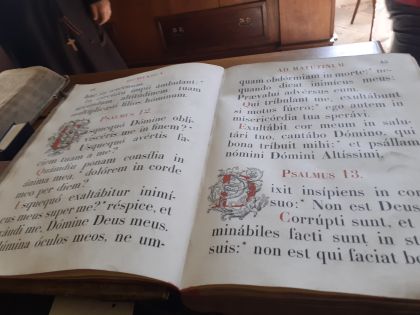 hac in circúitu ímpii ámbulant:*
altitúdinem tuam
fílios hóminum.
Psalmus 12.
Usquequo Dómine obli-
vísceris me in finem?*
Usquequo avértis fá-
ciem tuam a me?
Quámdiu ponam consília in
ánima mea,* dolórem in corde
meo per diem?
Usquequo exaltábitur inimí-
cus meus super me?* réspice, et
exáudi me, Dómine Deus meus.
Illúmina óculos meos, ne um-
AD MATUTINUM
quam obdórmiam in morte:*
quando dicat inimícus meus:
Præválui advérsus eum.
Qui tríbulant me, exsultábunt
si motus fúero:* ego autem in
misericórdia tua sperávi.
Exsultábit cor meum in salu-
tári tuo, cantábo Dómino, qui
bona tríbuit mihi:* et psállam
nómini Dómini Altíssimi,
Psalmus 13.
Dixit insípiens in cor
suo:* Non est Deus
Corrúpti sunt, et
minábiles facti sunt in s
suis:* non est qui fáciat bo